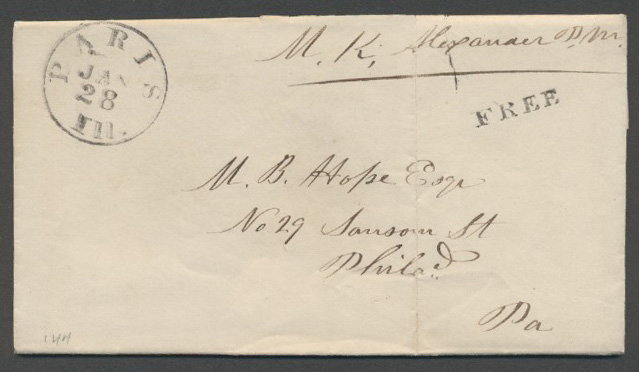 PARIS
JA
28
Ill.
M. K. Alexander P.M.
FREE
M. B. Hope Esqr
No 29 Sansom St
Philad.
Pa